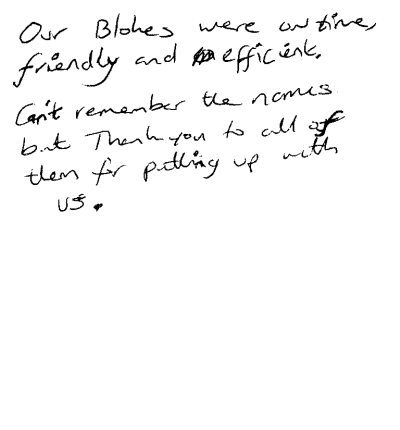 Our Blokes were on time,
friendly and efficient.
Can't remember the names
but Thank you to all of
them for putting up with
us.